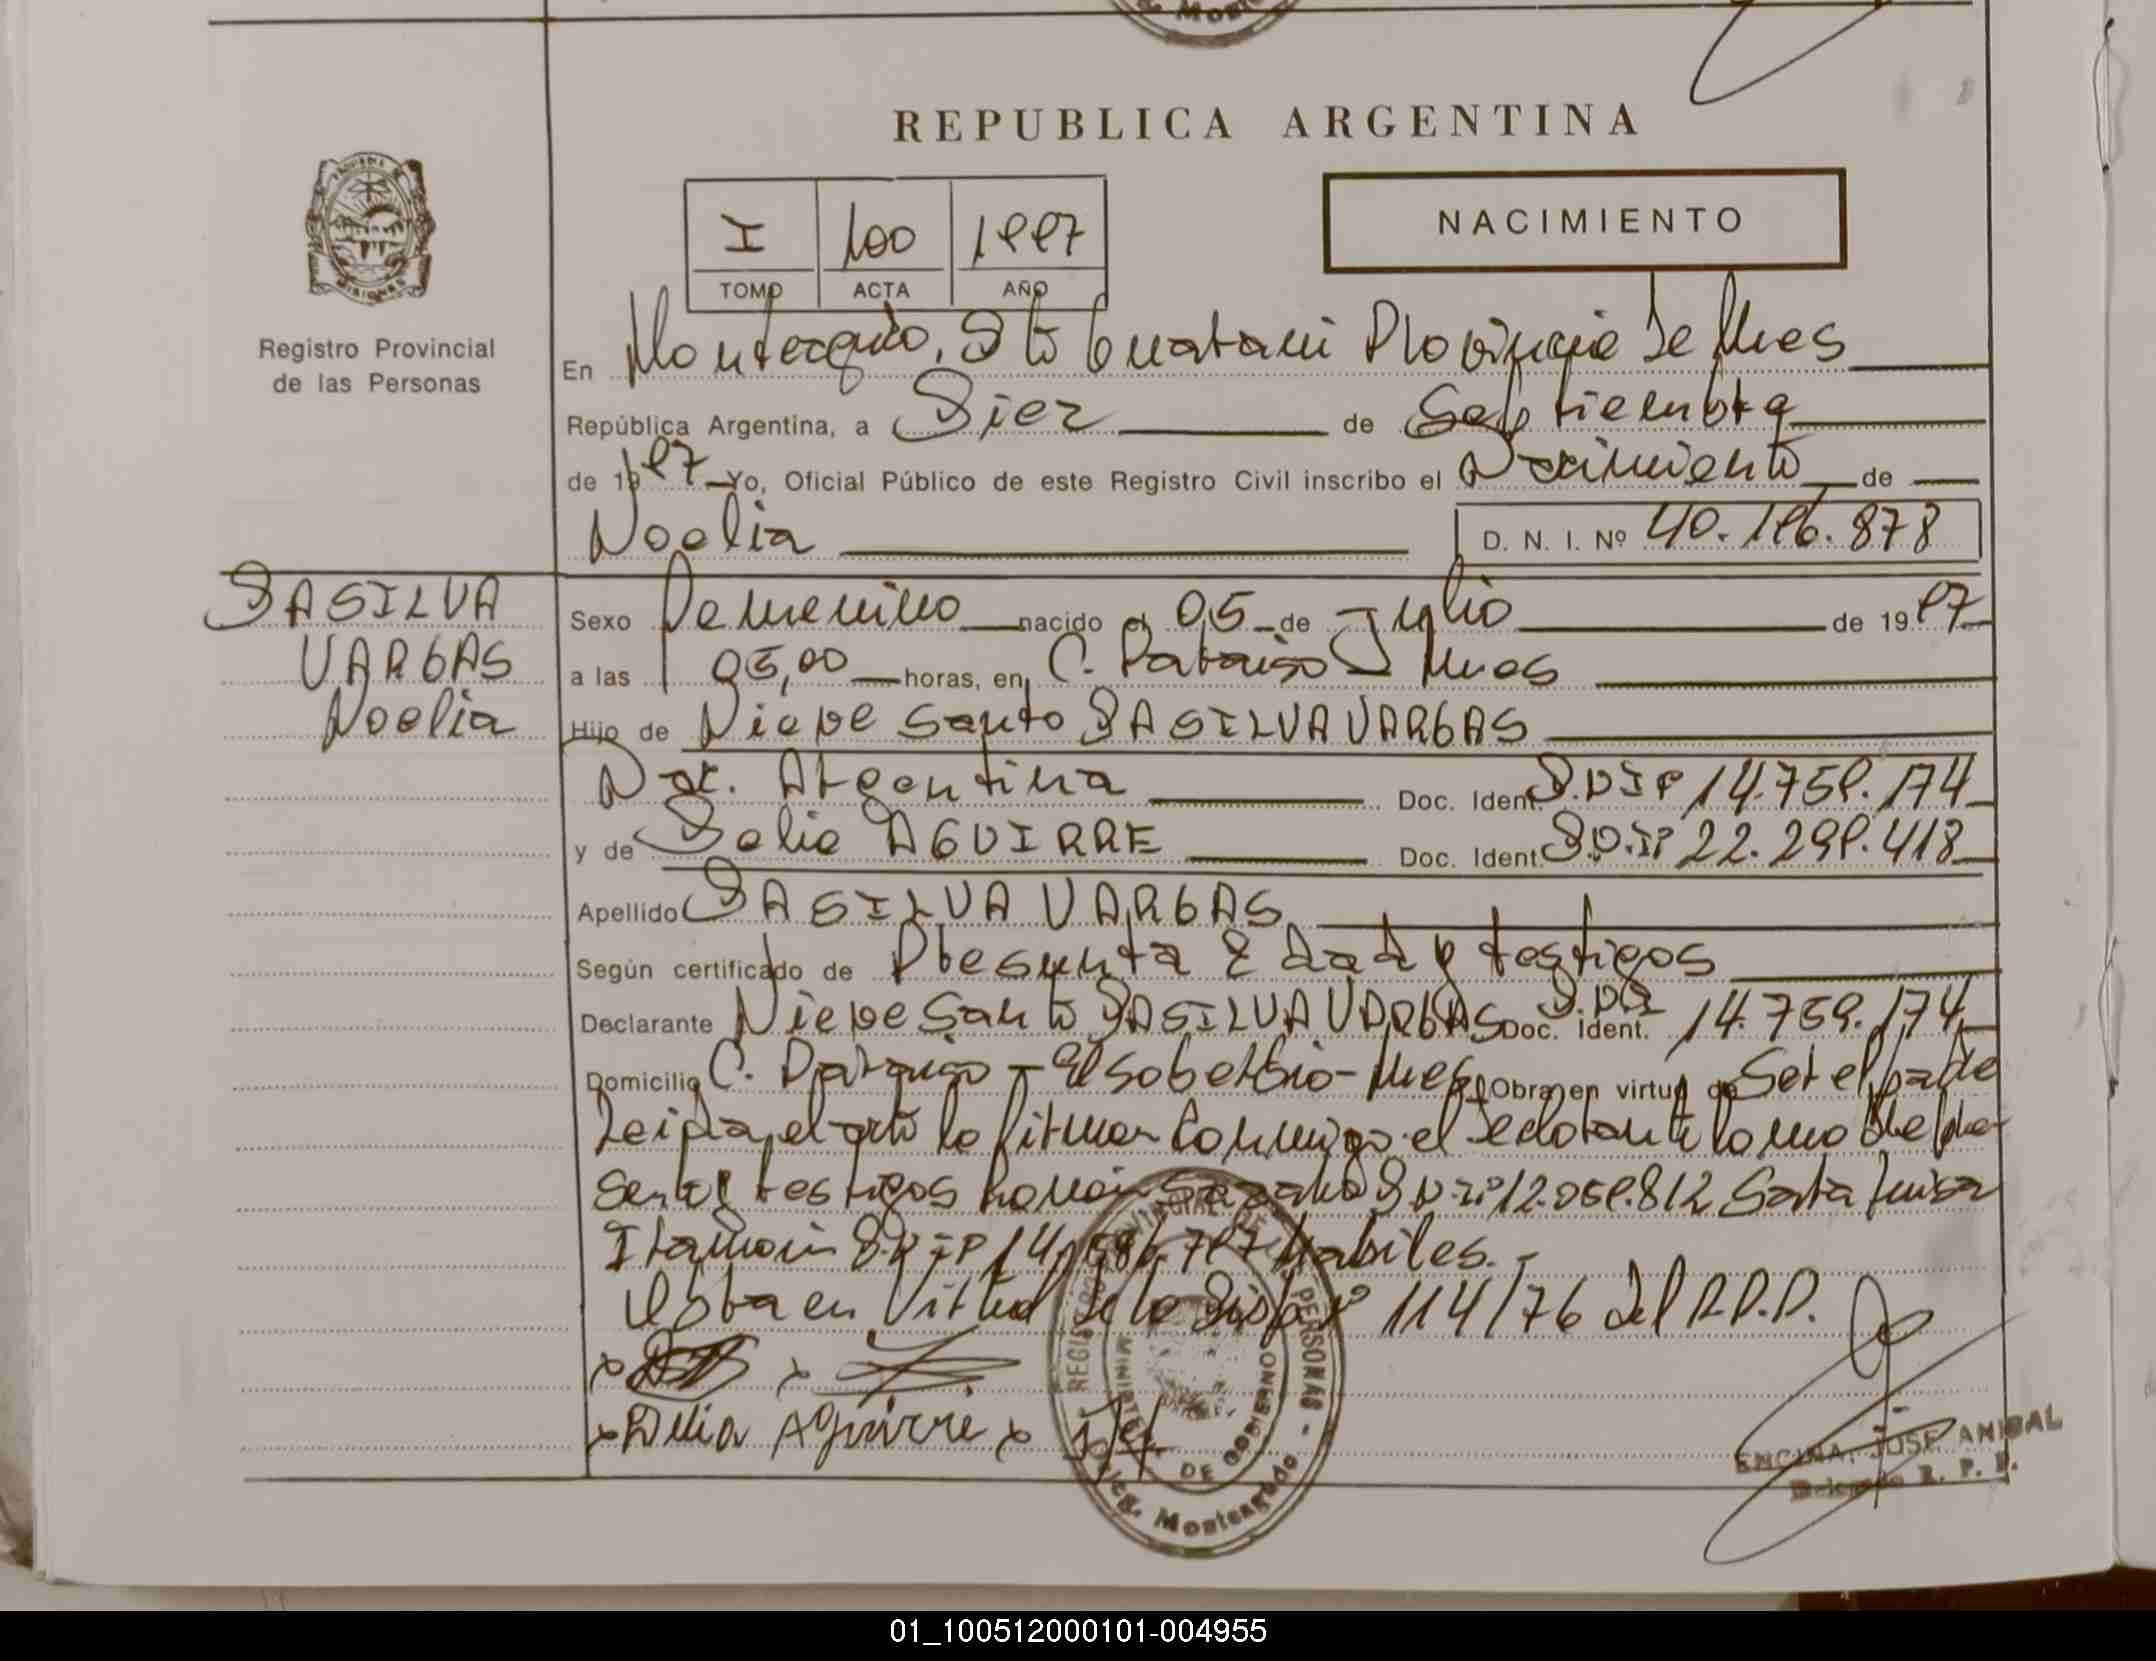 REPUBLICA ARGENTINA
NACIMIENTO
I 100 1997
TOMO ACTA AÑO
MISIONES
Registro Provincial
de las Personas
En Monteagudo, Dto Guarani Provincia de Mnes
República Argentina, a Diez de Septiembre
de 1997 Yo, Oficial Público de este Registro Civil inscribo el Nacimiento de
Noelia D. N. I. Nº 40.196.878
DASILVA
VARGAS
Noelia
Sexo Femenino nacido el 05 de Julio de 1997
a las 05,00 horas, en C. Paraiso Mnes
Hijo de Nieve Santo DASILVA VARGAS
Nac. Argentina Doc. Ident. D.N.Iº 14.759.174
y de Delia AGUIRRE Doc. Ident. D.N.Iº 22.299.418
Apellido DASILVA VARGAS
Según certificado de Presunta Edad y testigos
Declarante Nieve Santo DASILVA VARGAS Doc. Ident. DNI 14.759.174
Domicilio C. Paraiso - El Soberbio - Mnes Obra en virtud de Ser el padre
Leida el acta la firman conmigo el declarante como
testigos Ramón D.N.Iº 12.059.812 Luisa
D.N.Iº 14.586.797 habiles. -
Obra en Virtud de la Disp. nº 114/76 del R.P.P.
x x
x Delia Aguirre x
REGISTRO PROVINCIAL DE LAS PERSONAS -
MINISTERIO DE GOBIERNO
Deleg. Monteagudo
ENCINA, JOSE ANIBAL
Delegado R. P. P.
01_100512000101-004955